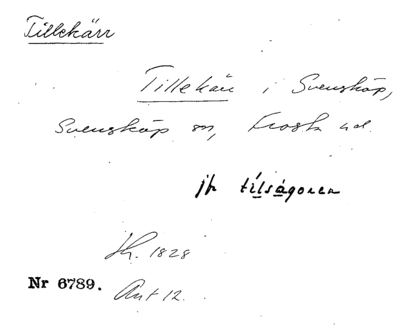 Tillekärr
Tillekärr i Svensköp,
Svensköp sn, Frosta hd.
jfr tilsågonen
Sk. 1828
Nr 6789. Ant 12.